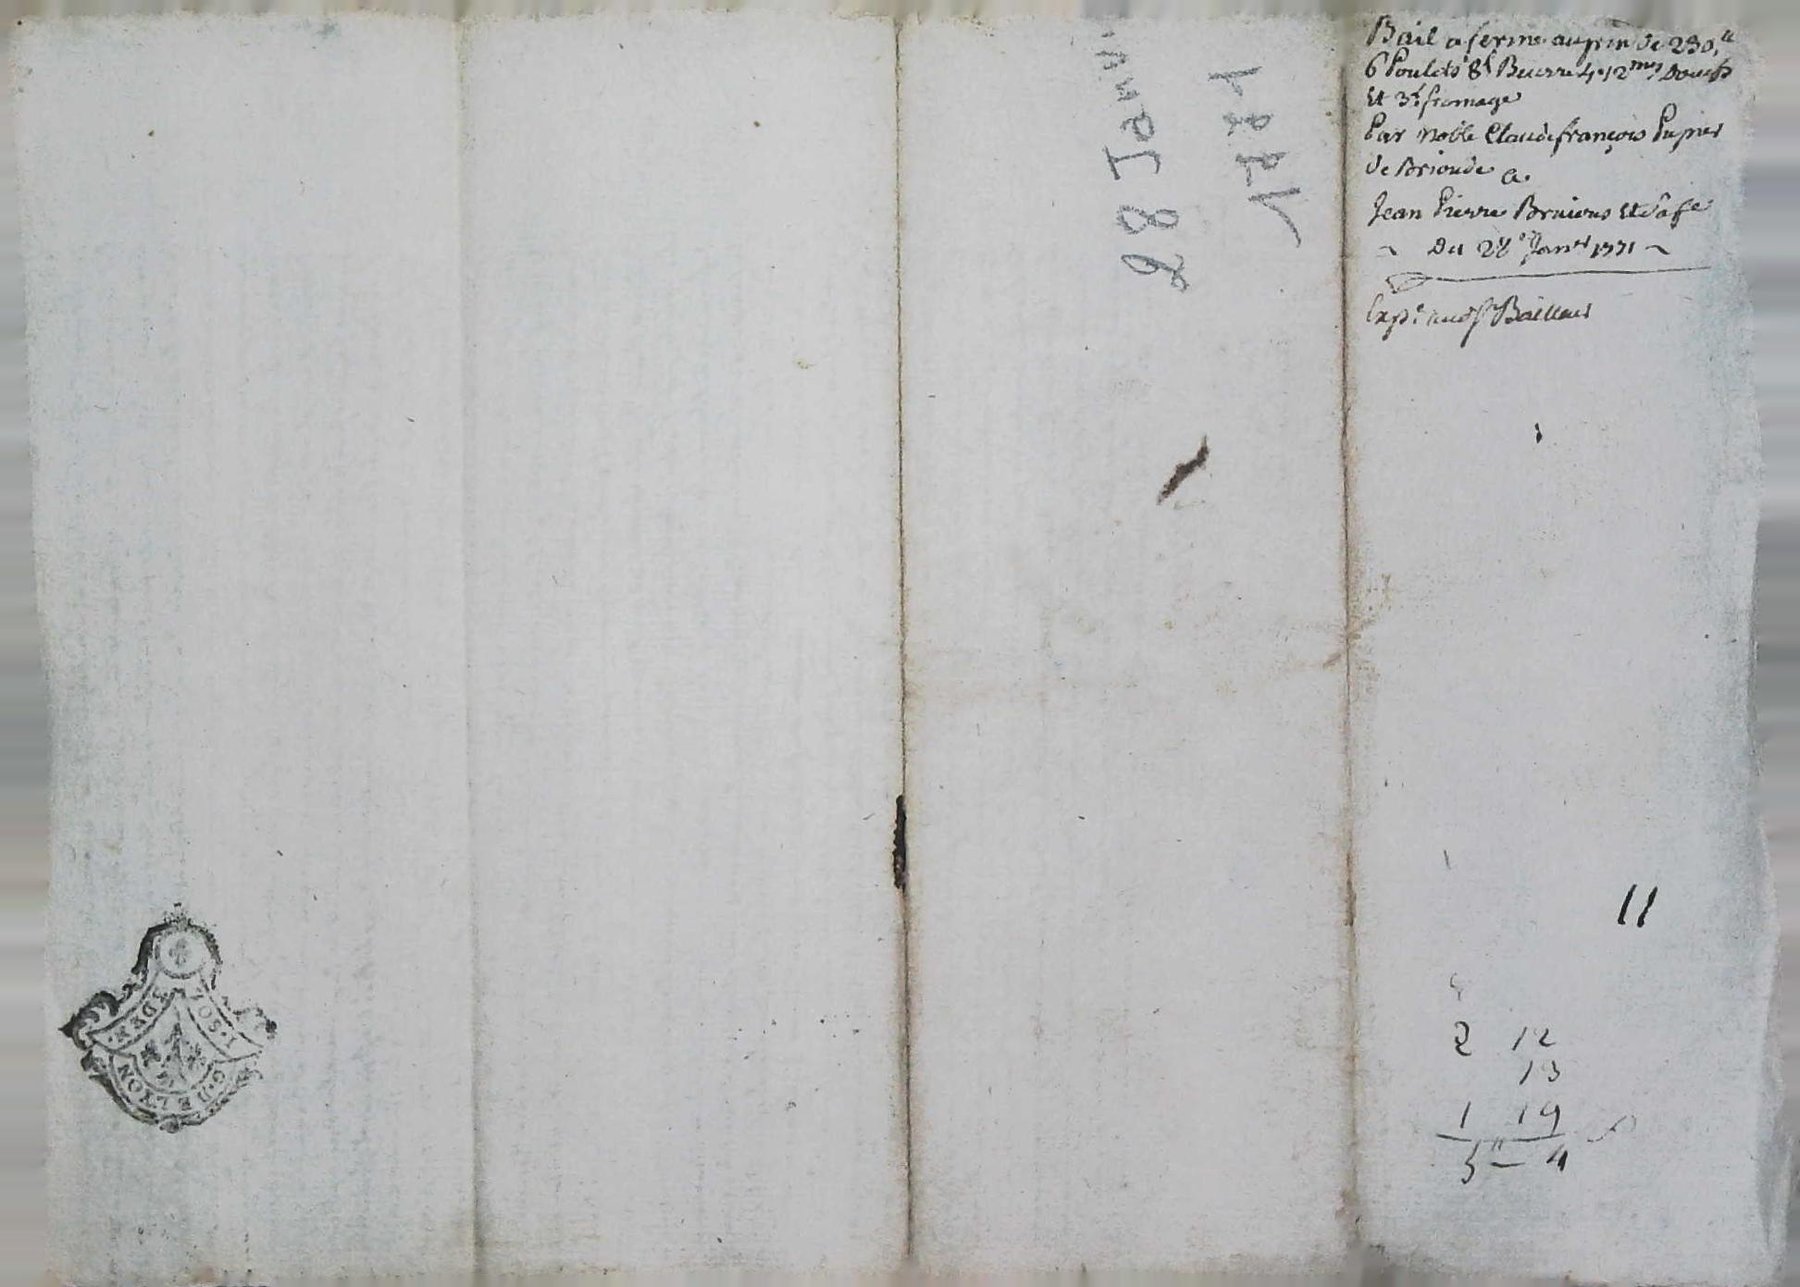 Bail a ferme au prix de 230.ll
6 Poulets 8l Beurre 4. 12
Et 3l fromage
Par Noble Claude françois Pupier
de Brioude a
Jean Pierre Bruieres Et Sa fe
~ Du 28e Janer 1771 ~
Bailleur
28 Janv.
1771
11
2 12
13
1 19
5 ll — 4
1. SOL
3. DEN.
G. DE LYON